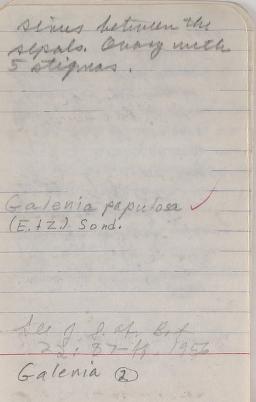 sinus between the
sepals. Ovary with
5 stigmas.
Galenia papulosa
(E. & Z.) Sond.
of S. Af. Bot
22: 37-, 1956
Galenia ②